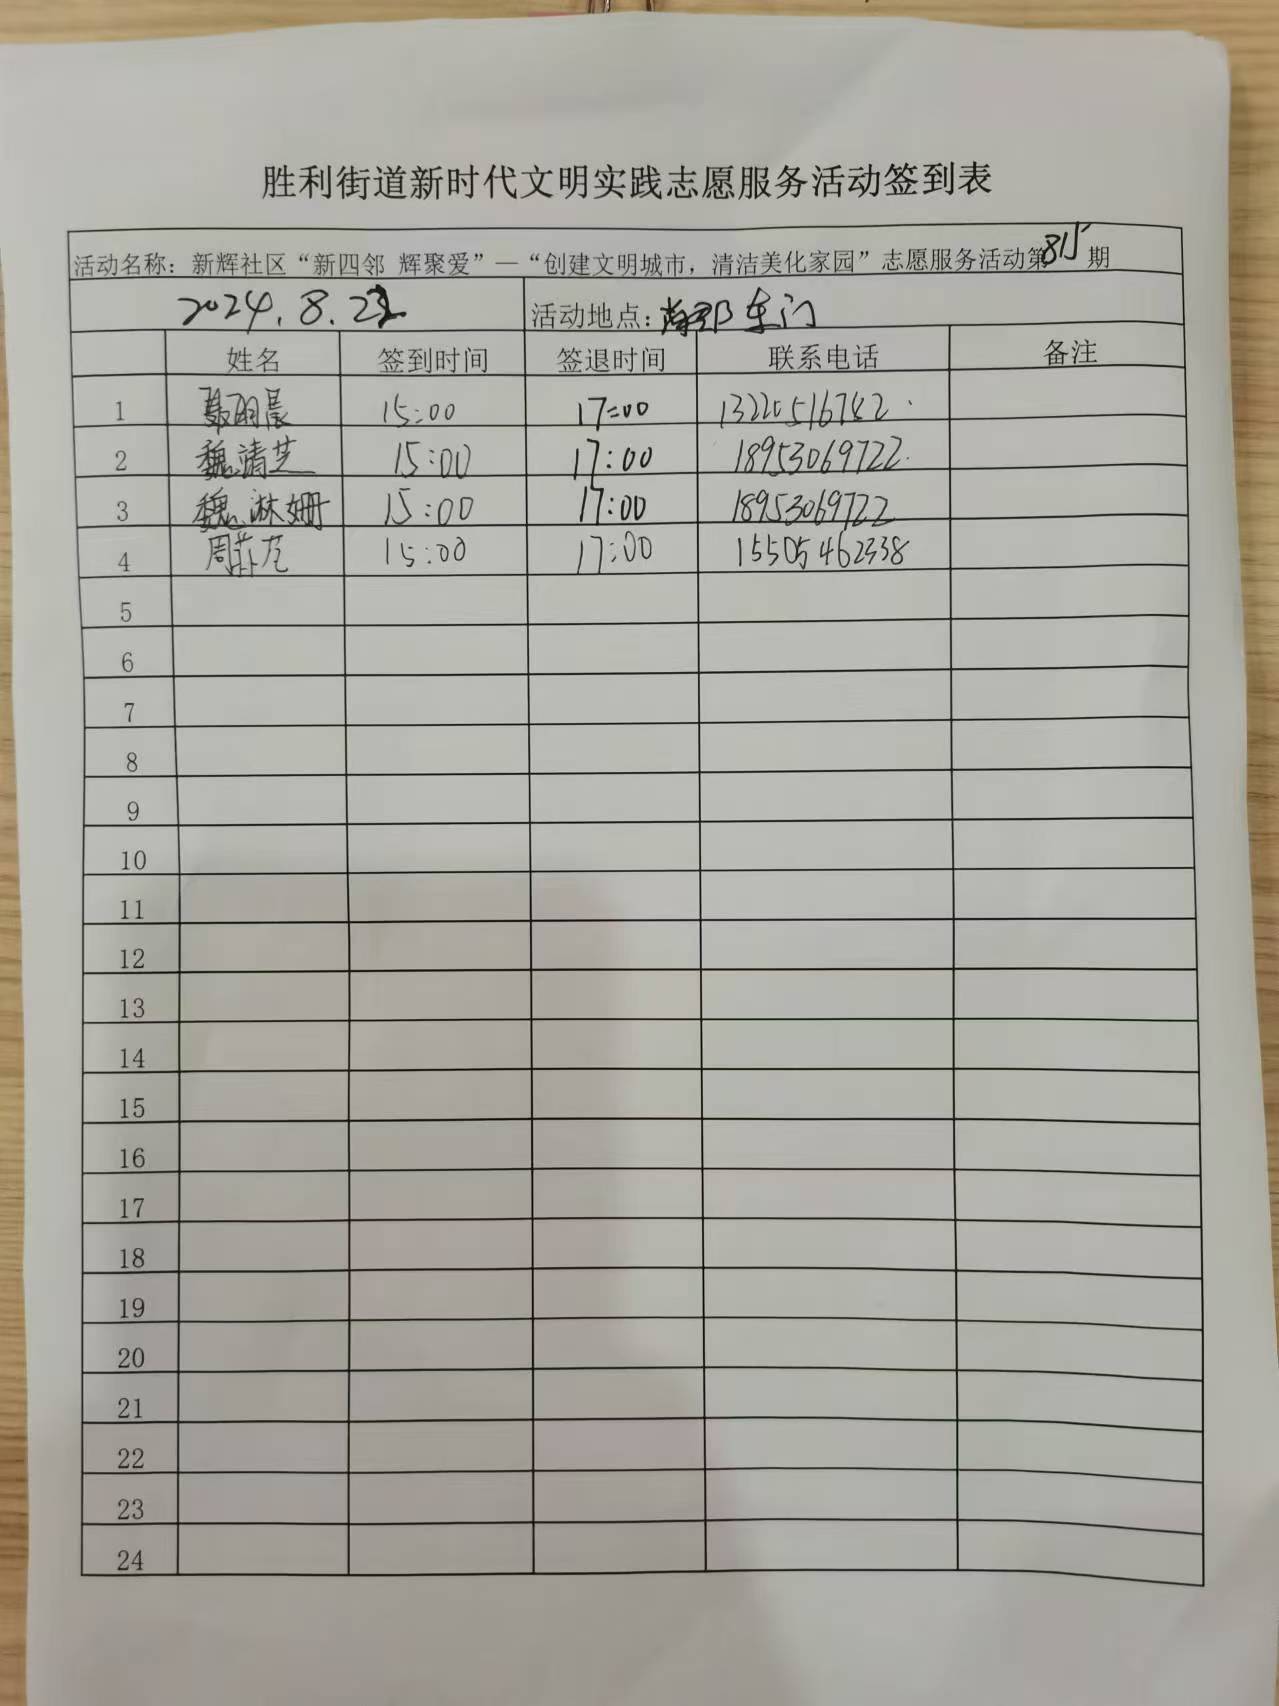 胜利街道新时代文明实践志愿服务活动签到表
活动名称：新辉社区“新四邻 辉聚爱”—“创建文明城市，清洁美化家园”志愿服务活动第815期
2024.8.22 活动地点：东门
姓名 签到时间 签退时间 联系电话 备注
1 聂雨晨 15:00 17:00 13220516742
2 魏靖芝 15:00 17:00 18953069722
3 魏淋姗 15:00 17:00 18953069722
4 周 15:00 17:00 15505462338
5
6
7
8
9
10
11
12
13
14
15
16
17
18
19
20
21
22
23
24